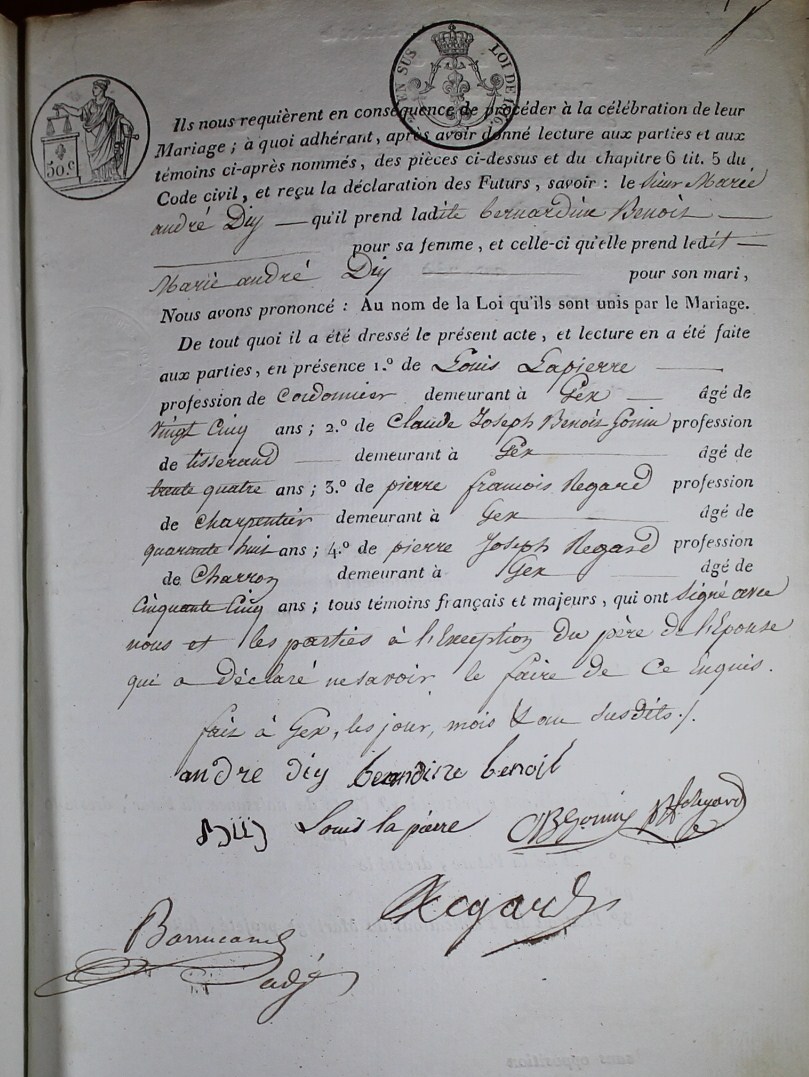 EN SUS LOI DE 1816
50 c
Ils nous requièrent en conséquence de procéder à la célébration de leur
Mariage ; à quoi adhérant, après avoir donné lecture aux parties et aux
témoins ci-après nommés, des pièces ci-dessus et du chapitre 6 tit. 5 du
Code civil, et reçu la déclaration des Futurs, savoir : le Sieur Marie
andré Diy — qu'il prend ladite bernardine Benoit —
pour sa femme, et celle-ci qu'elle prend ledit —
Marie andré Diy pour son mari,
Nous avons prononcé : Au nom de la Loi qu'ils sont unis par le Mariage.
De tout quoi il a été dressé le présent acte, et lecture en a été faite
aux parties, en présence 1.º de Louis Lapierre —
profession de Cordonnier demeurant à Gex — âgé de
Vingt Cinq ans ; 2.º de Claude Joseph Benoit Gonin profession
de tisserand — demeurant à Gex — âgé de
trente quatre ans ; 3.º de pierre francois Regard profession
de Charpentier demeurant à Gex — âgé de
quarante huit ans ; 4.º de pierre Joseph Regard profession
de Charron demeurant à Gex — âgé de
Cinquante Cinq ans ; tous témoins français et majeurs, qui ont signé avec
nous et les parties à l'Exception du père de l'Epouse
qui a déclaré ne savoir le faire de Ce Enquis.
fait à Gex, les jour, mois & an susdits ./.
andre diy benoit
Louis la pierre CJBGonin
Regard